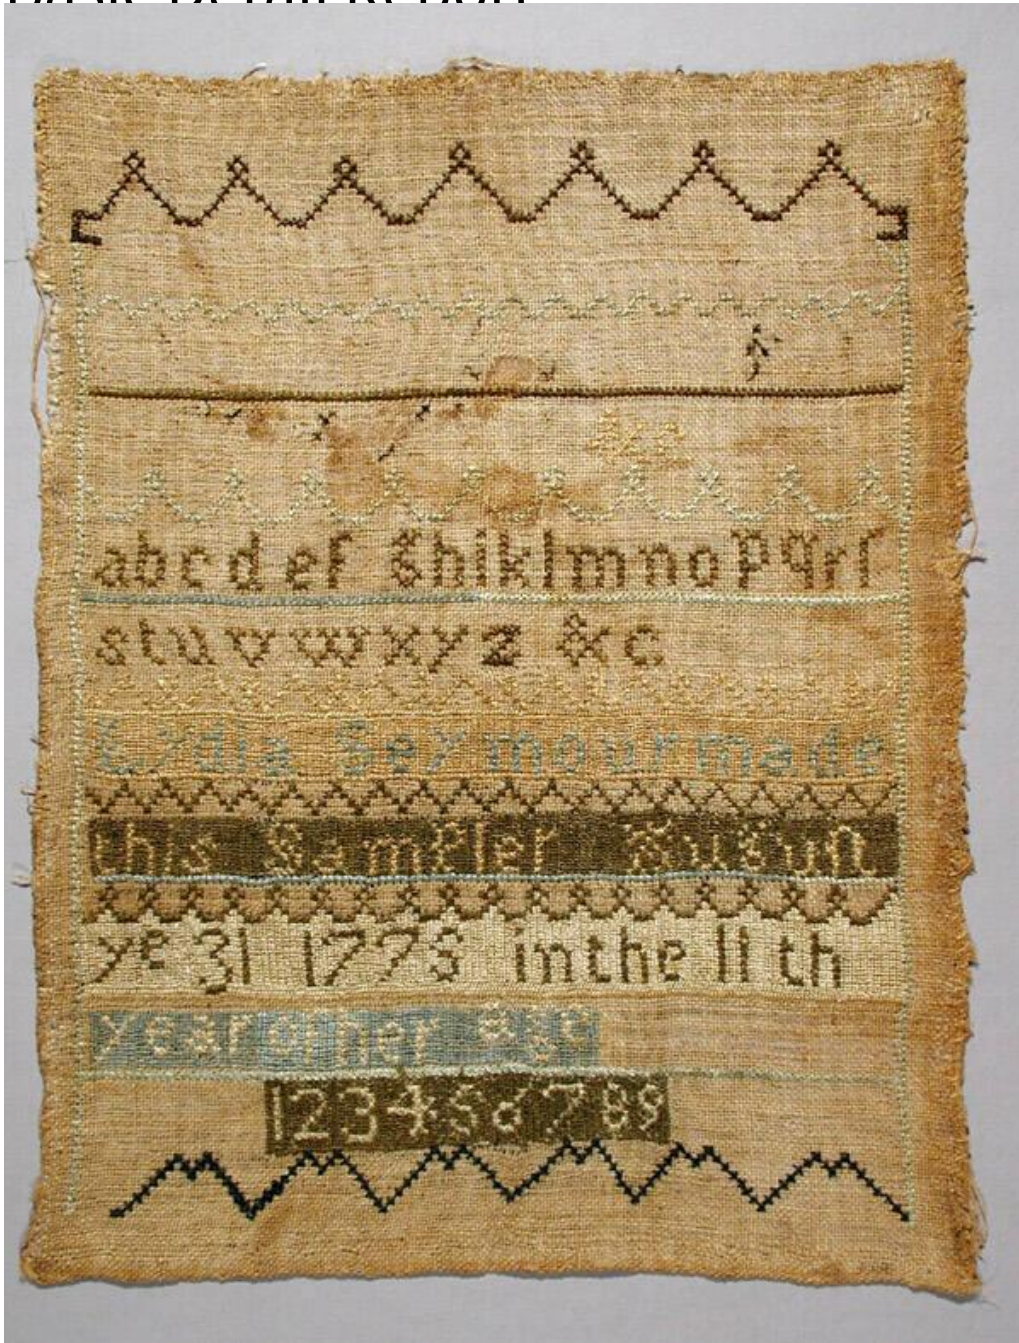 &c
abcdef ghiklmnopqrſ
stuvwxyz &c
Lydia Seymour made
this Sampler Auguſt
ye 31 1775 in the 11 th
year of her age
123456789